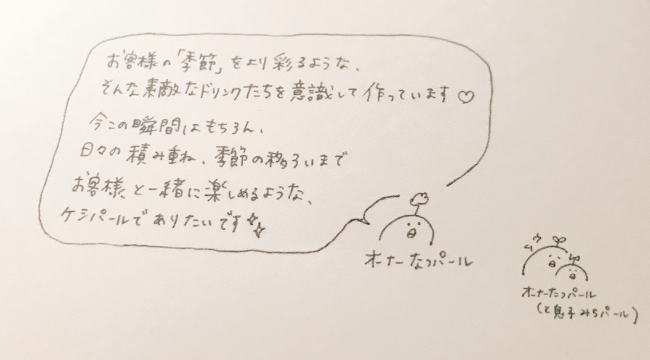 お客様の「季節」をより彩るような、
そんな素敵なドリンクたちを意識して作っています♡
今この瞬間はもちろん、
日々の積み重ね、季節の移ろいまで
お客様と一緒に楽しめるような、
ケシパールでありたいです☆☆
オーナーなつパール
ムウ
オーナーたつパール
(と息子みちパール)